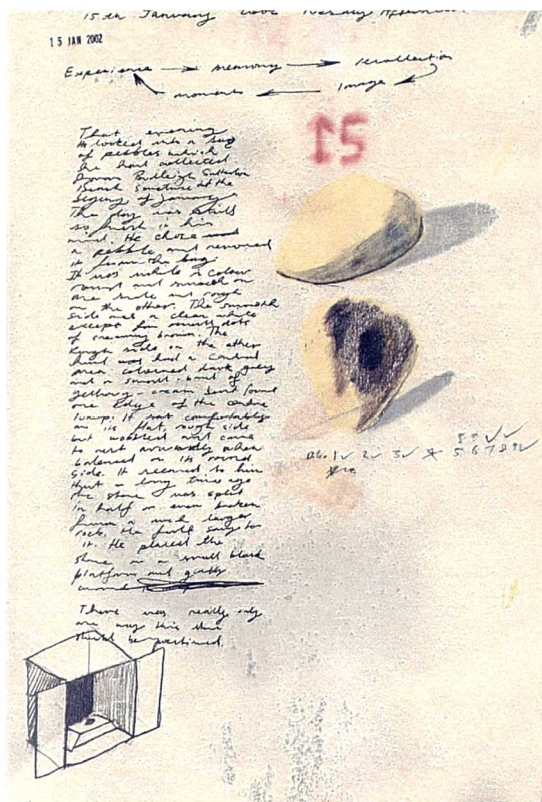 15th January 2002 Tuesday Afternoon
15 JAN 2002
Experience → memory → recollection
moments ← Image
15
That evening
He looked into a bag
of pebbles which
he had collected
from Budleigh Salterton
Beach sometime at the
begining of January
The day was still
so fresh in his
mind. He chose
a pebble and removed
it from the bag
It was white in colour
round and smooth on
one side and rough
on the other. The smooth
side was a clear white
except for small dots
of creamy brown. The
rough side on the other
hand was had a central
area coloured dark grey
and a small band of
yellowy-cream that found
one Edge of the centre
lump. It sat comfortably
on its flat, rough side
but wobbled and came
to rest awkwardly when
balanced on its round
side. It seemed to him
that a long time ago
the stone was split
in half or even broken
from a much larger
rock. He
it. He placed the
stone on a small black
platform and gently
around
There was really only
one way this stone
should be positioned.
1✓ 2✓ 3✓ 5 6 7 8 9✓